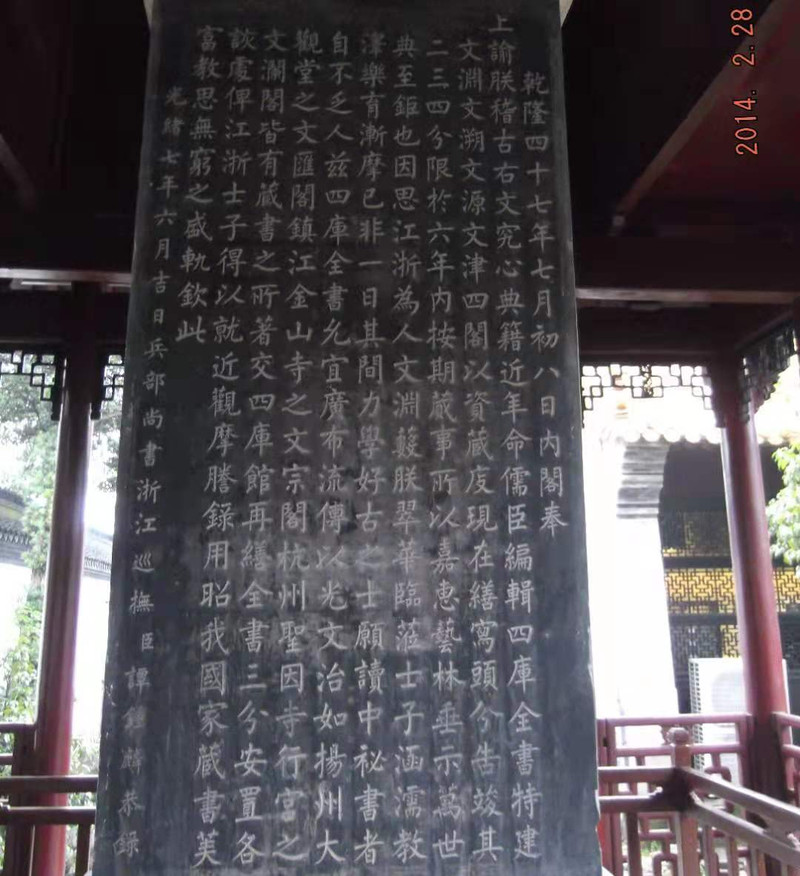 乾隆四十七年七月初八日內閣奉
上諭朕稽古右文究心典籍近年命儒臣編輯四庫全書特建
文淵文溯文源文津四閣以資藏庋現在繕寫頭分告竣其
二三四分限於六年內按期蕆事所以嘉惠藝林垂示萬世
典至鉅也因思江浙為人文淵藪朕翠華臨蒞士子涵濡教
澤樂育漸摩已非一日其間力學好古之士願讀中祕書者
自不乏人茲四庫全書允宜廣布流傳以光文治如揚州大
觀堂之文匯閣鎮江金山寺之文宗閣杭州聖因寺行宮之
文瀾閣皆有藏書之所著交四庫館再繕全書三分安置各
該處俾江浙士子得以就近觀摩謄錄用昭我國家藏書美
富教思無窮之盛軌欽此
光緒七年六月吉日兵部尚書浙江巡撫臣譚鍾麟恭錄
2014. 2.28